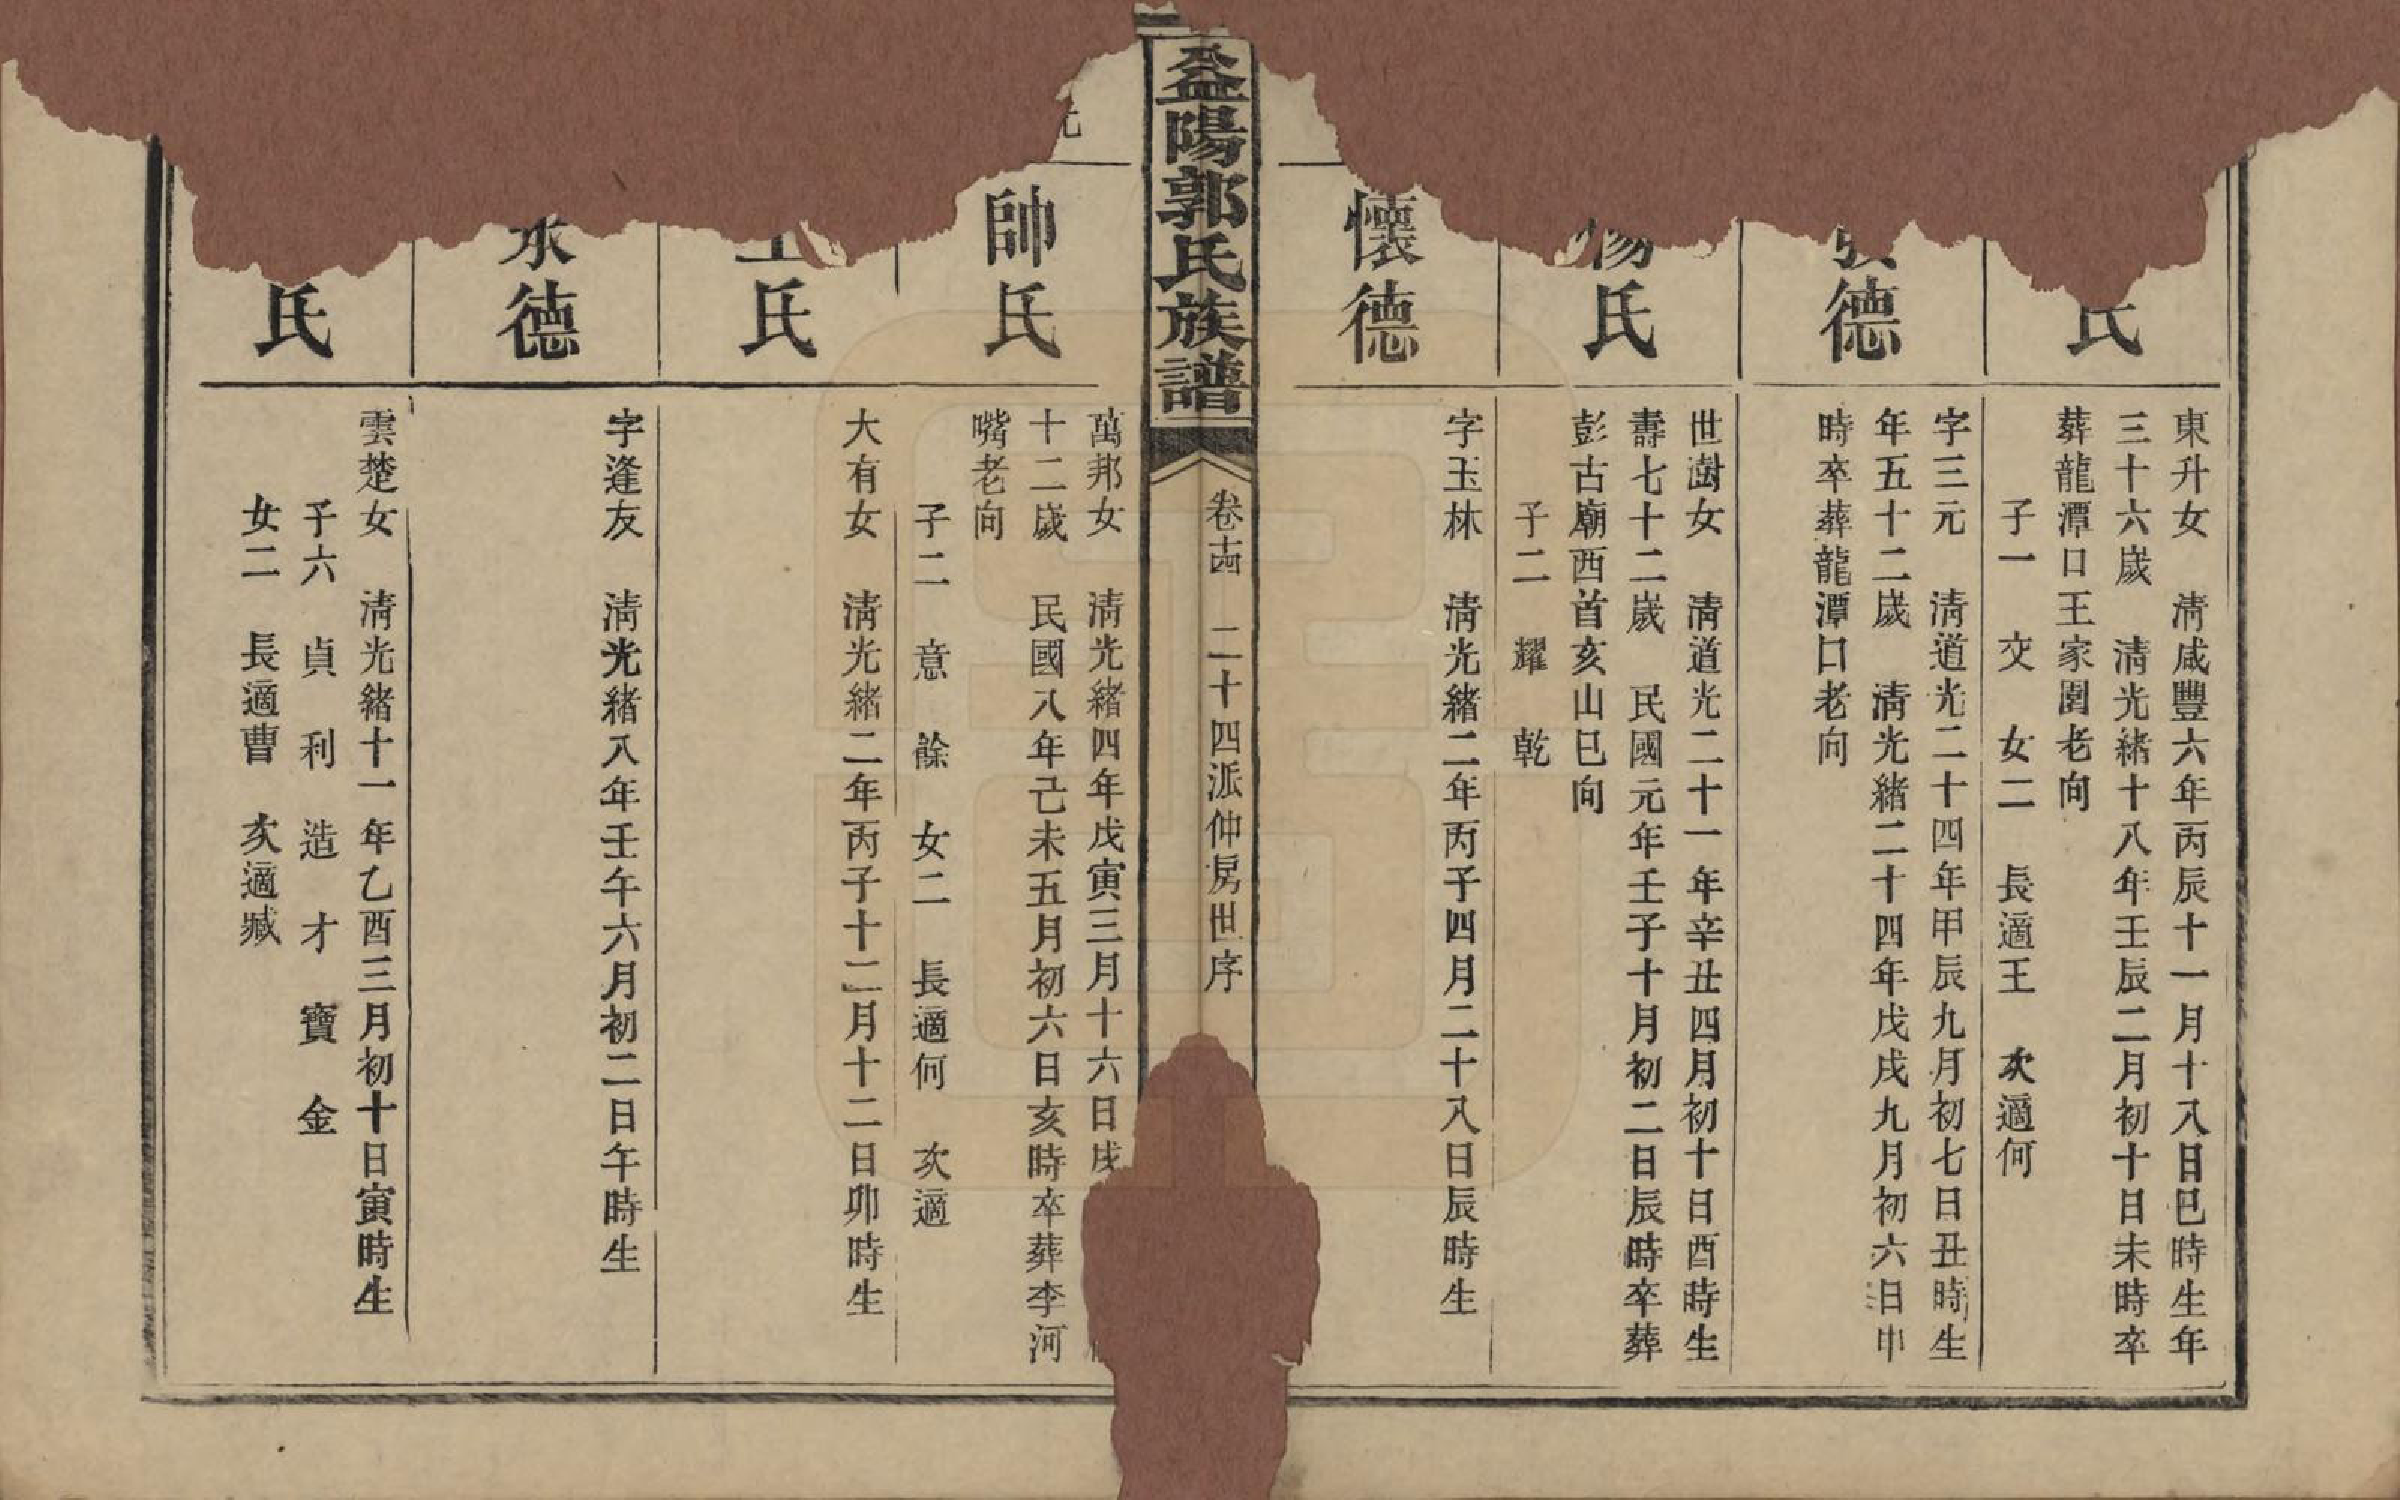 氏
東升女　清咸豐六年丙辰十一月十八日巳時生年
三十六歲　清光緒十八年壬辰二月初十日未時卒
葬龍潭口王家園老向
子一　交　女二　長適王　次適何
德
字三元　清道光二十四年甲辰九月初七日丑時生
年五十二歲　清光緒二十四年戊戌九月初六日申
時卒葬龍潭口老向
楊氏
世澍女　清道光二十一年辛丑四月初十日酉時生
壽七十二歲　民國元年壬子十月初二日辰時卒葬
彭古廟西首亥山巳向
子二　耀　乾
懷德
字玉林　清光緒二年丙子四月二十八日辰時生
益陽郭氏族譜
卷十四　二十四派仲房世序
帥氏
萬邦女　清光緒四年戊寅三月十六日戌
十二歲　民國八年己未五月初六日亥時卒葬李河
嘴老向
子二　意　餘　女二　長適何　次適
氏
大有女　清光緒二年丙子十二月十二日卯時生
承德
字逢友　清光緒八年壬午六月初二日午時生
氏
雲楚女　清光緒十一年乙酉三月初十日寅時生
子六　貞　利　造　才　寶　金
女二　長適曹　次適臧